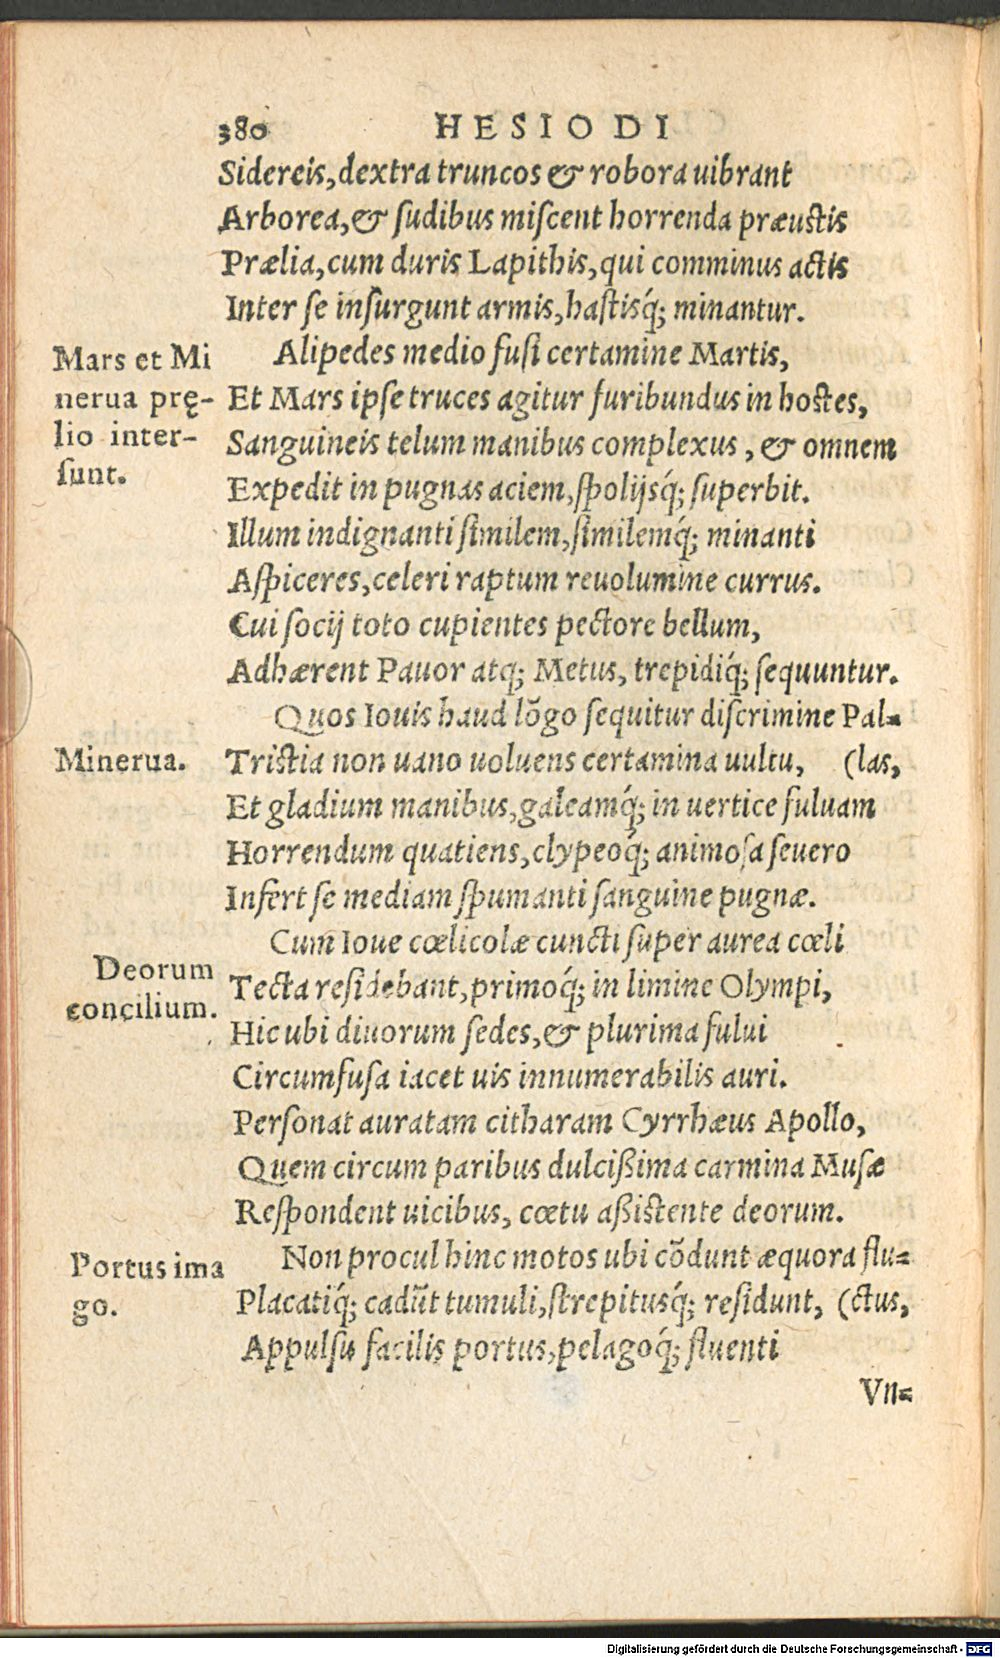 380 HESIODI
Sidereis, dextra truncos & robora uibrant
Arborea, & ſudibus miſcent horrenda præuſtis
Prælia, cum duris Lapithis, qui comminus actis
Inter ſe inſurgunt armis, haſtisq́; minantur.
Mars et Mi
nerua prę-
lio inter-
ſunt.
Alipedes medio fuſi certamine Martis,
Et Mars ipſe truces agitur furibundus in hoſtes,
Sanguineis telum manibus complexus, & omnem
Expedit in pugnas aciem, ſpolijsq́; ſuperbit.
Illum indignanti ſimilem, ſimilemq́; minanti
Aſpiceres, celeri raptum reuolumine currus.
Cui ſocij toto cupientes pectore bellum,
Adhærent Pauor atq; Metus, trepidiq́; ſequuntur.
Quos Iouis haud lōgo ſequitur diſcrimine Pal-
Minerua.
Triſtia non uano uoluens certamina uultu, (las,
Et gladium manibus, galeamq́; in uertice fuluam
Horrendum quatiens, clypeoq́; animoſa ſeuero
Infert ſe mediam ſpumanti ſanguine pugnæ.
Cum Ioue cœlicolæ cuncti ſuper aurea cœli
Deorum
concilium.
Tecta reſidebant, primoq́; in limine Olympi,
Hic ubi diuorum ſedes, & plurima fului
Circumfuſa iacet uis innumerabilis auri.
Perſonat auratam citharam Cyrrhæus Apollo,
Quem circum paribus dulcißima carmina Muſæ
Reſpondent uicibus, cœtu aßiſtente deorum.
Portus ima
go.
Non procul hinc motos ubi cōdunt æquora flu-
Placatiq́; cadūt tumuli, ſtrepitusq́; reſidunt, (ctus,
Appulſu facilis portus, pelagoq́; fluenti
Vn-
Digitalisierung gefördert durch die Deutsche Forschungsgemeinschaft - DFG